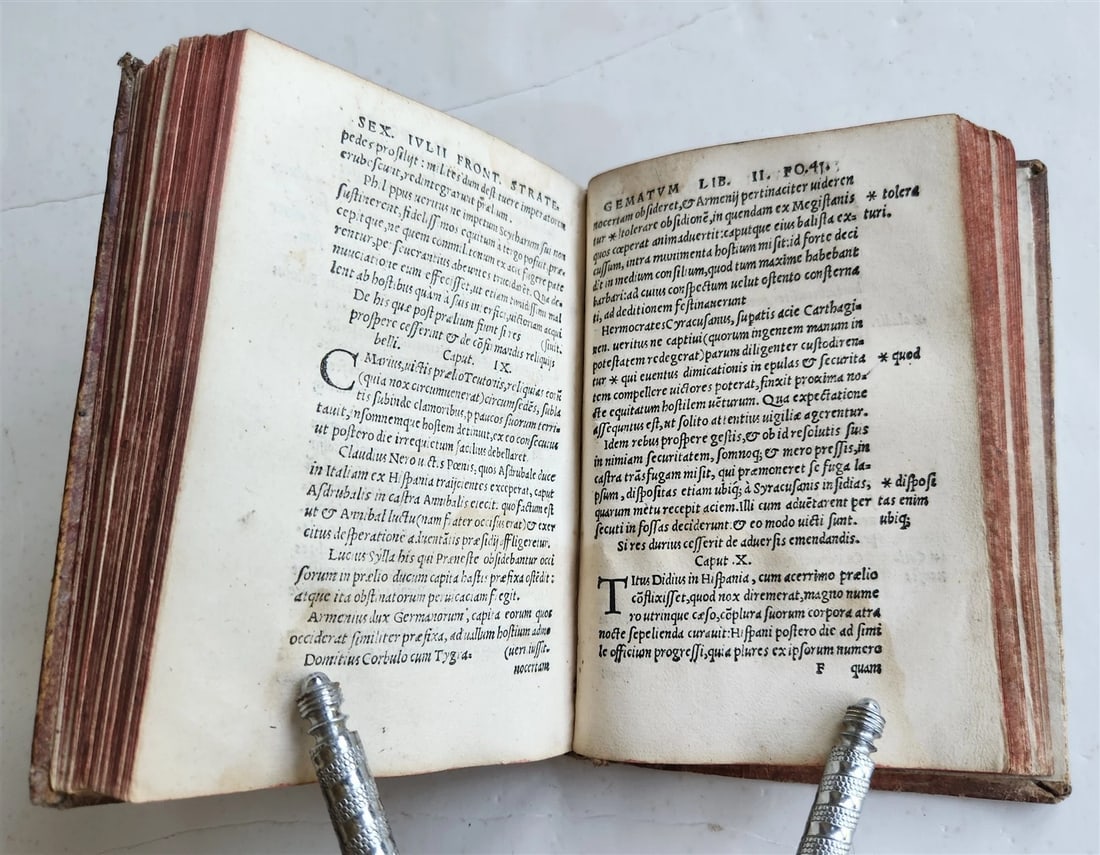 SEX. IVLII FRONT. STRATE-
pedes prosilijt: milites dum destituere imperatorem
erubescunt, redintegrarunt prælium.
Philippus veritus ne impetum Scytharum sui non
sustinerent, fidelissimos equitum à tergo posuit, præ-
cepitque, ne quem commilitonum ex acie fugere pate
rentur, perseverantius abeuntes trucidaret. Qua de-
nuntiatione cum effecisset, ut etiam timidissimi mal
lent ab hostibus quàm à suis interfici, victoriam acqui
De his quæ post prælium fiunt si res (siuit.
prospere cesserunt & de cõsūmandis reliquijs
belli. Caput. IX.
C Marius, victis prælio Teutonis, reliquias eorū
(quia nox circumuenerat) circumsedēs, subla
tis subinde clamoribus, p paucos suorum terri-
tauit, insomnemque hostem detinuit, ex eo consecutus
ut postero die irrequietum facilius debellaret.
Claudius Nero victis Pœnis, quos Asdrubale duce
in Italiam ex Hispania traijcientes exceperat, caput
Asdrubalis in castra Annibalis eiecit. quo factum est
ut & Annibal luctu (nam frater occisus erat) & exer
citus desperatione aduentātis præsidij affligeretur.
Lucius Sylla his qui Præneste obsidebantur occi
sorum in prælio ducum capita hastis præfixa ostēdit:
atque ita obstinatorum peruicaciam fregit.
Armenius dux Germanorum, capita eorum quos
occiderat similiter præfixa, ad uallum hostium admo
Domitius Corbulo cum Tygra- (ueri iussit.
nocertam
GEMATVM LIB. II. FO.41.
nocertam obsideret, & Armenij pertinaciter uideren
tur * tolerare obsidionē, in quendam ex Megistanis
quos cœperat animaduertit: caputque eius balista ex-
cussum, intra munimenta hostium misit: id forte deci
dit in medium consilium, quod tum maxime habebant
barbari: ad cuius conspectum uelut ostento consterna
ti, ad deditionem festinauerunt
Hermocrates Cyracusanus, supatis acie Carthagi-
nen. ueritus ne captiui (quorum ingentem manum in
potestatem redegerat) parum diligenter custodiren-
tur * qui euentus dimicationis in epulas & securita
tem compellere uictores poterat, finxit proxima no-
cte equitatum hostilem uēturum. Qua expectatione
assequutus est, ut solito attentius uigiliæ agerentur.
Idem rebus prospere gestis, & ob id resolutis suis
in nimiam securitatem, somnoq; & mero pressis, in
castra trāsfugam misit, qui præmoneret se fuga la-
psum, dispositas etiam ubiq; à Syracusanis insidias,
quarum metu recepit aciem. Illi cum aduētarent per
secuti in fossas deciderunt. & eo modo uicti sunt.
Si res durius cesserit de aduersis emendandis.
Caput .X.
TItus Didius in Hispania, cum acerrimo prælio
cōflixisset, quod nox diremerat, magno nume
ro utrinque cæso, cōplura suorum corpora atra
nocte sepelienda curauit: Hispani postero die ad simi
le officium progressi, quia plures ex ipsorum numero
F quam
* tolera
turi.
* quod
* disposi
tas enim
ubiq;